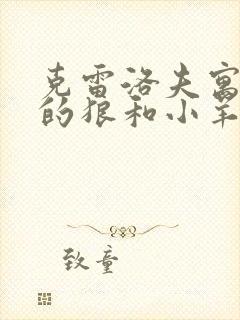 克雷洛夫寓
的狼和小羊
致童